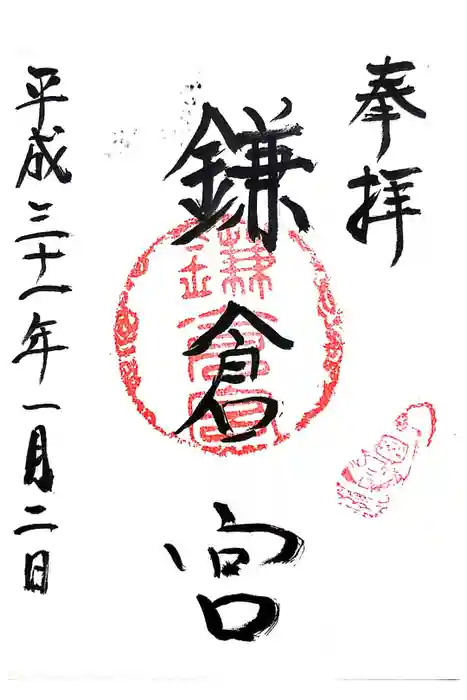 奉拝
鎌倉宮
平成三十一年一月二日
鎌倉宮